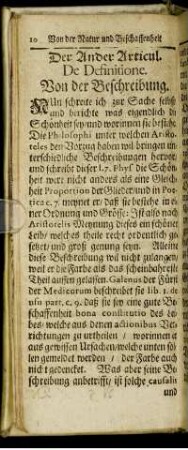 10 Von der Natur und Beschaffenheit
Der Ander Articul.
De Definitione.
Von der Beschreibung.
NUn schreite ich zur Sache selbst
und berichte was eigendlich die
Schönheit sey und worinnen sie bestehe.
Die Philosophi unter welchen Aristo-
teles den Vorzug haben wil bringen un-
terschiedliche Beschreibungen hervor,
und schreibt dieser l. 7. Phys. die Schön-
heit wer nicht anders als eine Gleich-
heit Proportion der Glieder und in Poë-
tica c. 7. meynet er/ daß sie bestehe in ei-
ner Ordnung und Grösse: Ist also nach
Aristotelis Meynung dieses ein schöner
Leib/ welches theile recht ordentlich ge-
setzet/ und groß genung seyn. Alleine
diese Beschreibung wil nicht zulangen/
weil er die Farbe als das scheinbahrest
Theil aussen gelassen. Galenus der Fürst
der Medicorum beschreibet sie lib. 1. de
usu part. c. 9. daß sie sey eine gute Be-
schaffenheit bona constitutio des Lei-
bes/ welche aus denen actionibus Ver-
richtungen zu urtheilen / worinnen
aus gewissen Ursachen/ welche unten sol-
len gemeldet werden / der Farbe auch
nicht gedencket. Was aber seine Be-
schreibung anbetrifft/ ist solche causalis
und